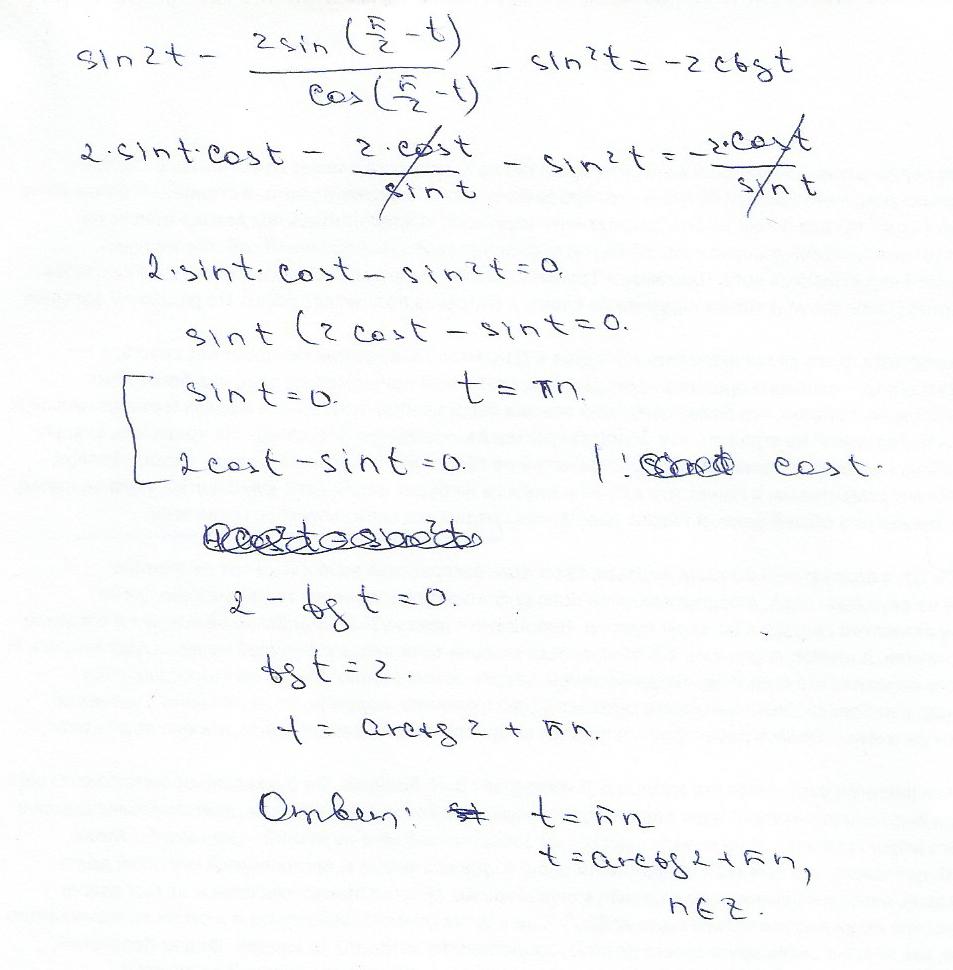 sin2t - 2sin (π/2 - t) / cos (π/2 - t) - sin²t = -2 ctgt
2·sint·cost - 2·cost / sint - sin²t = -2·cost / sint
2·sint·cost - sin²t = 0.
sint (2cost - sint = 0.
sint = 0. t = πn.
2cost - sint = 0. | : cost.
2 - tgt = 0.
tgt = 2
t = arctg2 + πn.
Ответ: t = πn
t = arctg2 + πn,
n∈Z.